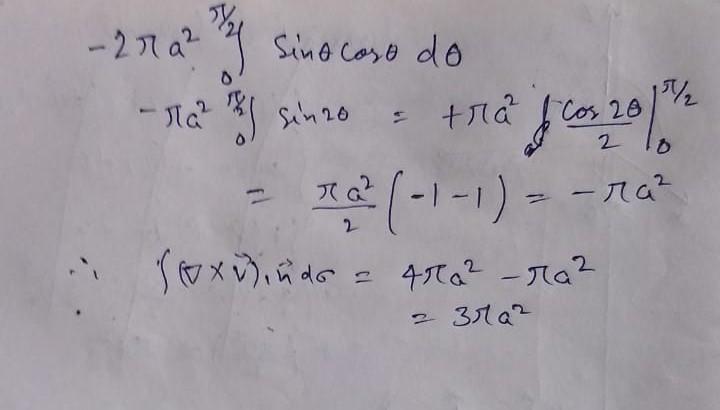 -2πa² ∫₀^{π/2} sinθ cosθ dθ
-πa² ∫₀^{π/2} sin2θ = +πa² ∫ cos 2θ/2 |₀^{π/2}
= πa²/2 (-1-1) = -πa²
∴ ∫(∇×v⃗).n⃗dσ = 4πa² - πa²
= 3πa²